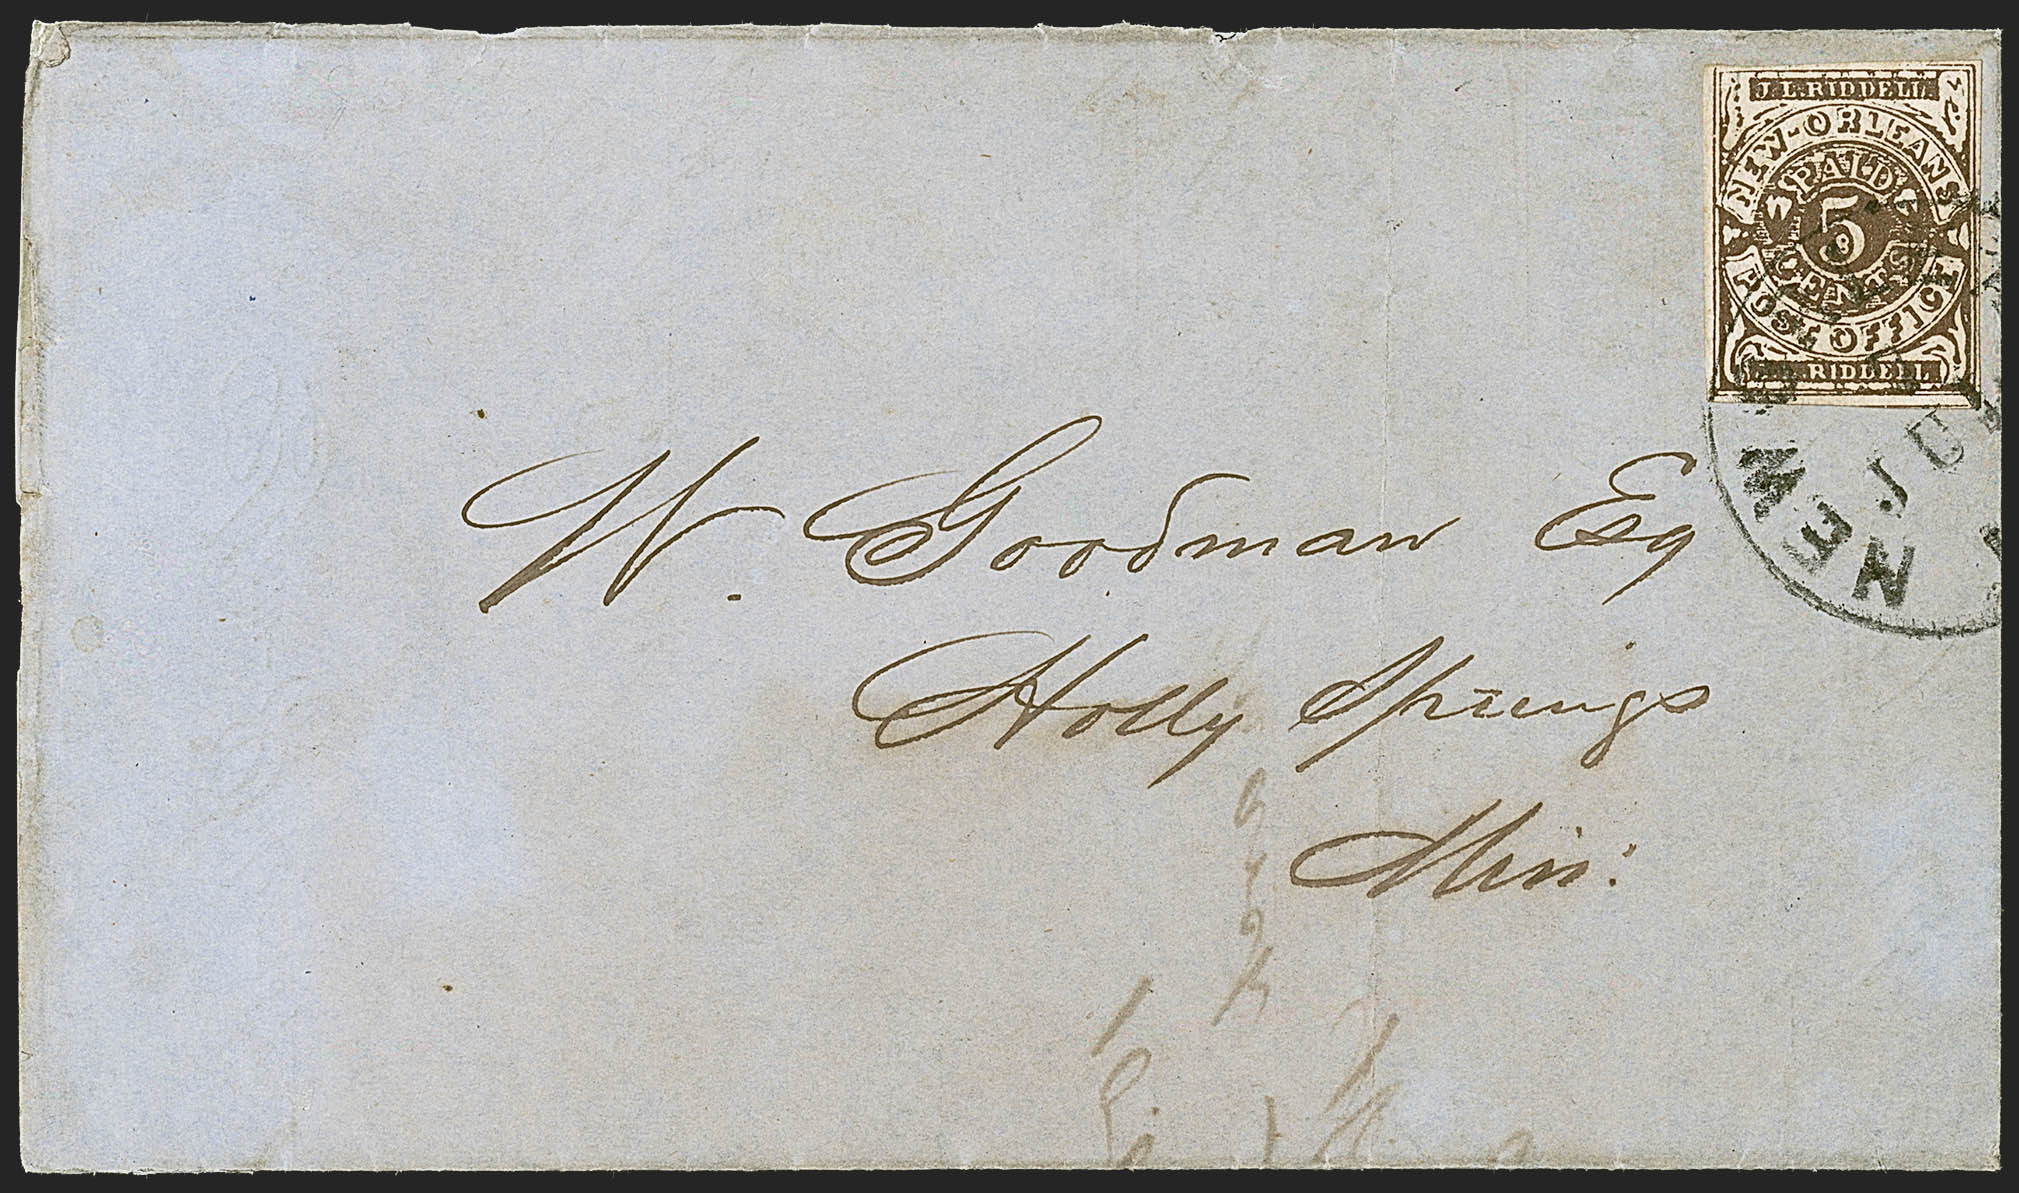 J.L. RIDDELL
NEW-ORLEANS
PAID
5
CENTS
POST OFFICE
RIDDELL
NEW O
JU
W. Goodman Esq
Holly Springs
Miss: